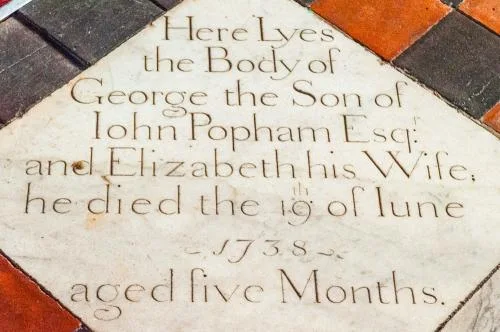 Here Lyes
the Body of
George the Son of
Iohn Popham Esqr.
and Elizabeth his Wife;
he died the 19th of Iune
~ 1738 ~
aged five Months.